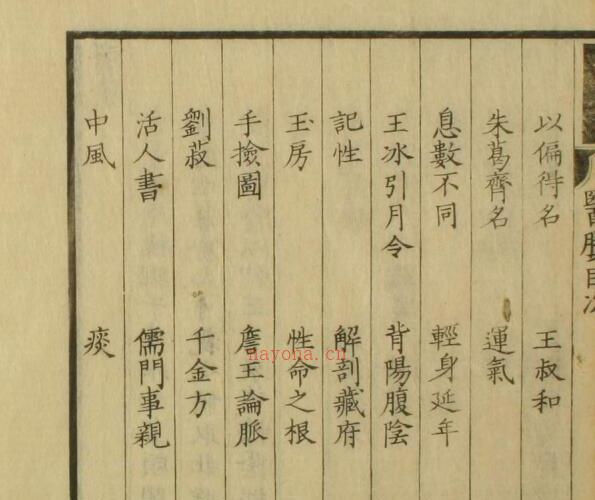 醫賸目次
以偏得名 王叔和
朱葛齊名 運氣
息數不同 輕身延年
王冰引月令 背陽腹陰
記性 解剖藏府
玉房 性命之根
手撿圖 詹王論脈
劉菽 千金方
活人書 儒門事親
中風 痰
nayona.cn